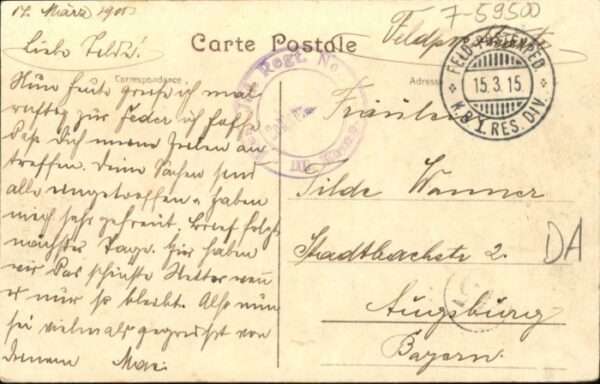 14. März 1915
7-59500
Feldpostkarte
Liebe Tilde!
Carte Postale
Correspondance
Adresse
FELD-POSTEXPED
15.3.15.
K.B. 1. RES. DIV.
Regt. No
III
Nun heute greife ich mal
kräftig zur Feder ich hoffe
daß Dich meine Zeilen an-
treffen. Deine Sachen sind
alle eingetroffen u. haben
mich sehr gefreut. Brief folgt
nächster Tage. Hier haben
wir das schönste Wetter wenn
es nur so bleibt. Also nun
sei vielmals gegrüßt von
deinem Max.
Fräulein
Tilde Wanner
Stadtbachstr 2.
DA
Augsburg
Bayern.